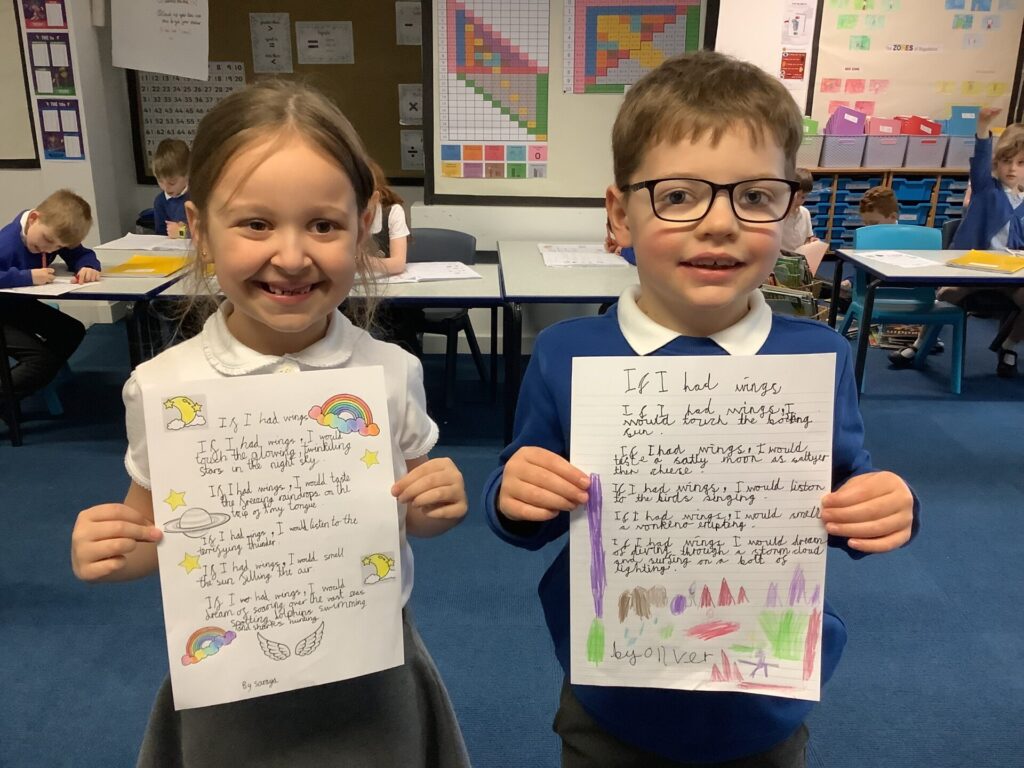 If I had wings
If I had wings, I would
touch the glowing, twinkling
stars in the night sky.
If I had wings, I would taste
the freezing raindrops on the
tip of my tongue.
If I had wings, I would listen to the
terrifying thunder.
If I had wings, I would smell
the sun filling the air.
If I had wings, I would
dream of soaring over the vast seas
spotting dolphins swimming
and sharks hunting.
By Soraya
If I had wings
If I had wings, I
would touch the boiling
sun.
If I had wings, I would
taste a salty moon as saltyer
then cheese.
If I had wings, I would liston
to the birds singing.
If I had wings, I would smell
a vonkeno erupting.
If I had wings I would dream
of diving through a storm cloud
and surfing on a bolt of
lighting.
by Oliver
The ZONES of Regulation